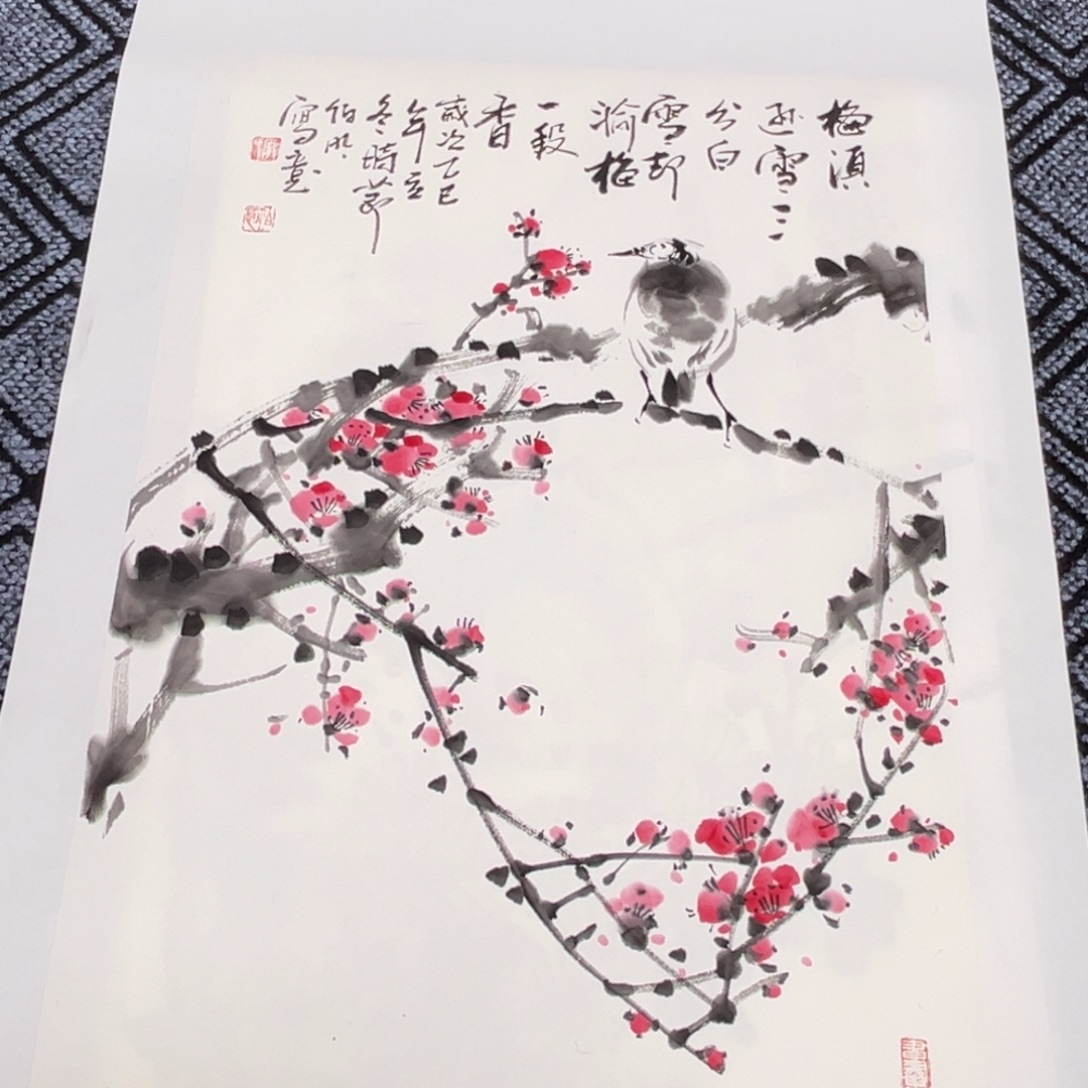 梅須
遜雪三
分白
雪却
瀹梅
一段
香
歲次乙巳
年立
冬時節
寫意